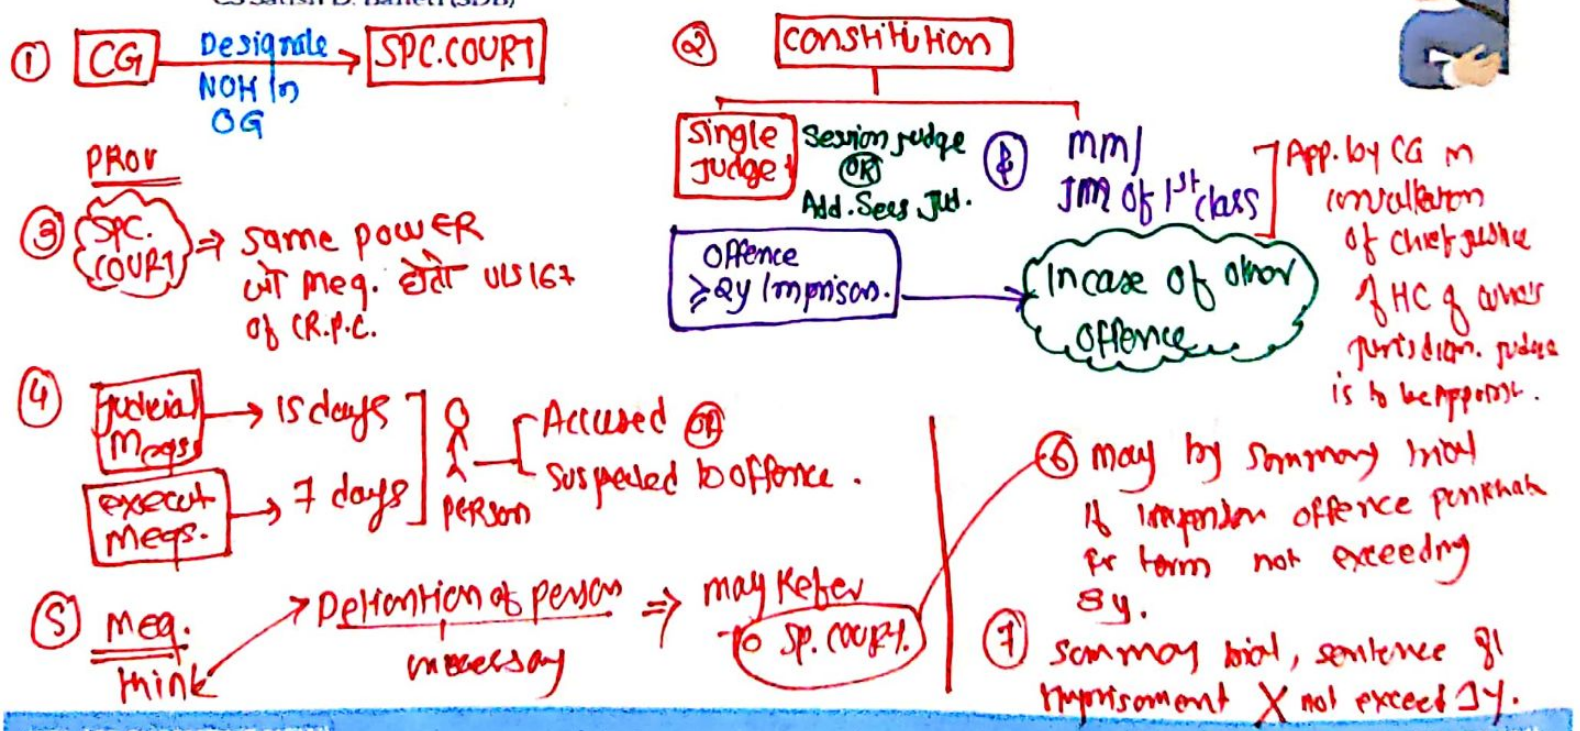 ① CG Designate SPC.COURT
Notn in
OG
② Constitution
Single Judge
Session judge
OR
Add. Sess Jud.
&
mm/
JM of 1st class
App. by CG in
consultation
of Chief Justice
of HC of
jurisdion. judge
is to be Appoint.
Offence
≥2y Imprison.
In case of other
offence
PROV
③ SPC. COURT ⇒ same powER
जो meg. होते U/S 167
of CR.P.C.
④ Judicial Megs. → 15 days
execut Megs. → 7 days
PERSON
Accused OR
Suspected to offence.
⑤ Meg.
think
Detiontion of person
unnecessay
⇒ may Refer
To SP. COURT.
⑥ may by summary trial
If offence
for term not exceeding
3y.
⑦ summay trial, sentence of
Imprisoment X not exceed 1y.